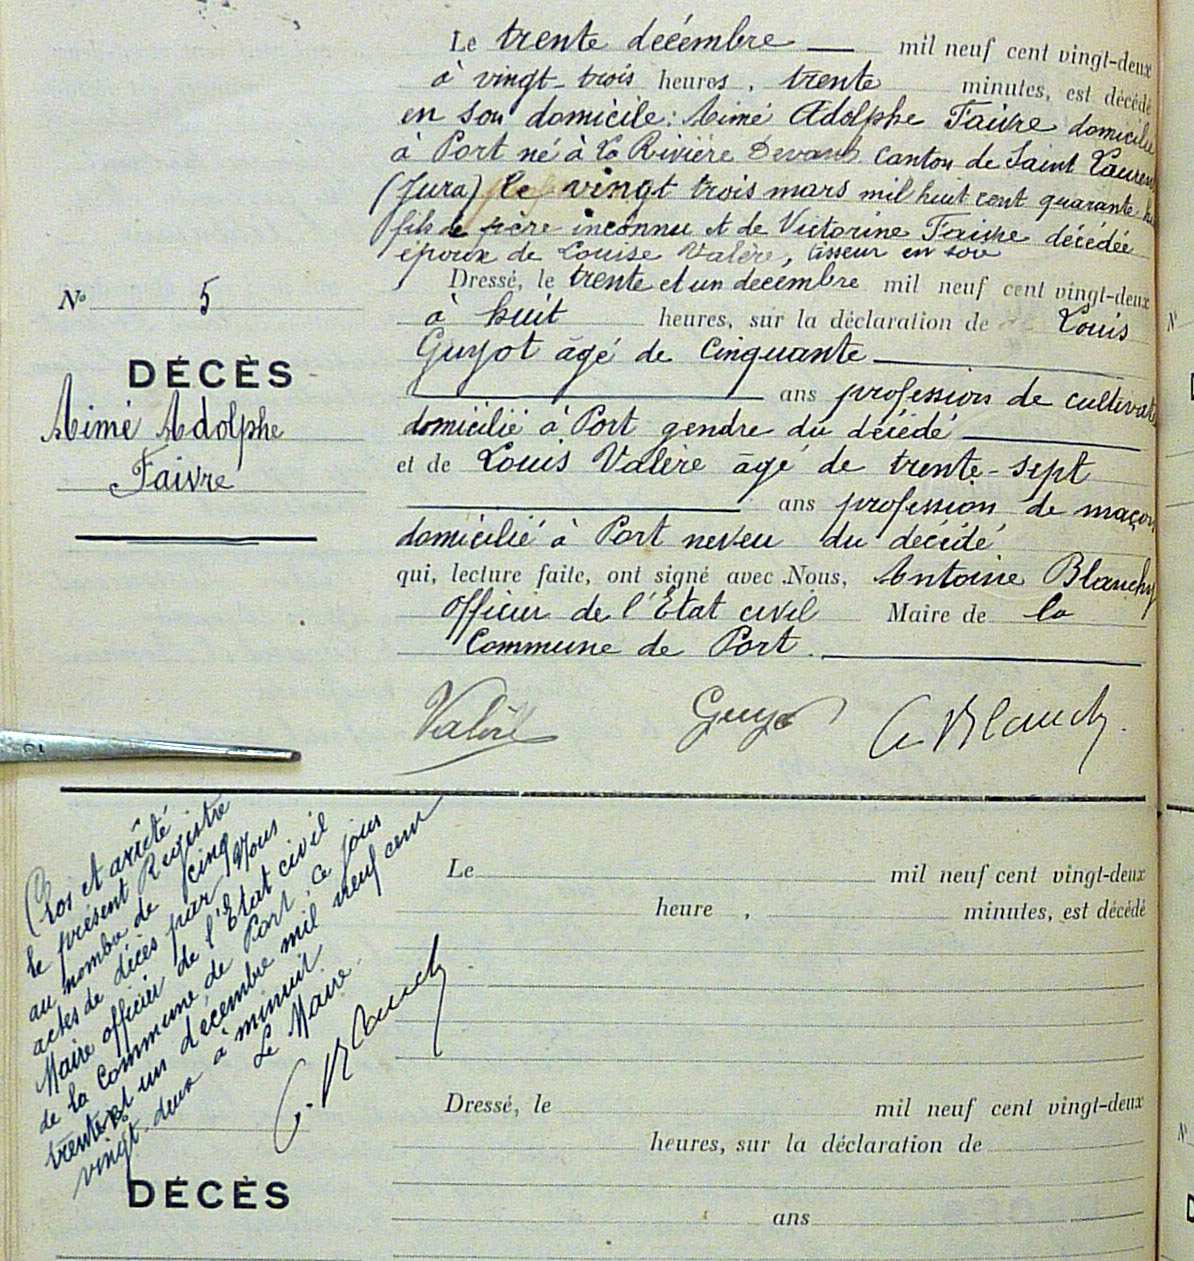 Le trente décembre — mil neuf cent vingt-deux
à vingt-trois heures, trente minutes, est décédé
en son domicile: Aimé Adolphe Faivre domicilié
à Port né à La Rivière Devant canton de Saint Laurent
(Jura) le vingt trois mars mil huit cent quarante
fils de père inconnu et de Victorine Faivre décédée
époux de Louise Valère, tisseur en soie
Dressé, le trente et un décembre mil neuf cent vingt-deux
à huit heures, sur la déclaration de Louis
Guyot âgé de Cinquante
ans profession de cultivate
domicilié à Port gendre du décédé
et de Louis Valère âgé de trente-sept
ans profession de maçon
domicilié à Port neveu du décédé
qui, lecture faite, ont signé avec Nous, Antoine Blanchy
Officier de l'État civil Maire de la
Commune de Port.
N° 5
DÉCÈS
Aimé Adolphe
Faivre
Valère Guyot A. Blanch
Clos et arrêté
le présent Registre
au nombre de cinq
actes de décès par Nous
Maire officier de l'État civil
de la Commune de Port, ce jour
trente et un décembre mil neuf cent
vingt-deux à minuit
Le Maire
A. Blanch
Le mil neuf cent vingt-deux
heure , minutes, est décédé
Dressé, le mil neuf cent vingt-deux
heures, sur la déclaration de
DÉCÈS
ans
N°
N°